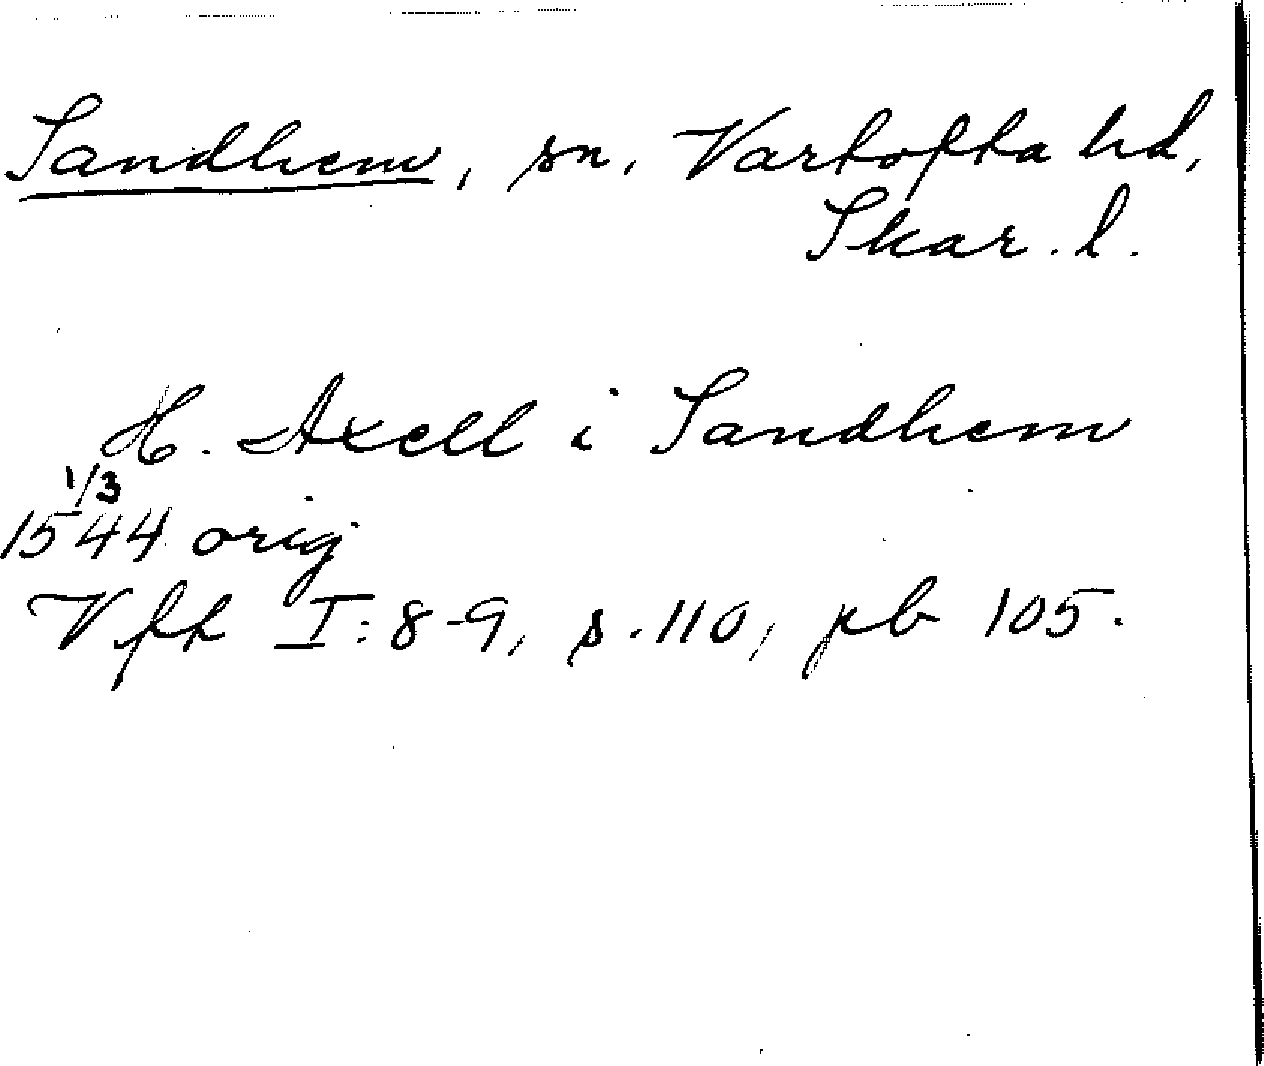 Sandhem, sn, Vartofta hd,
Skar. l.
H. Axell i Sandhem
1/3
1544 orig
Vfh I: 8-9, s. 110, pb 105.